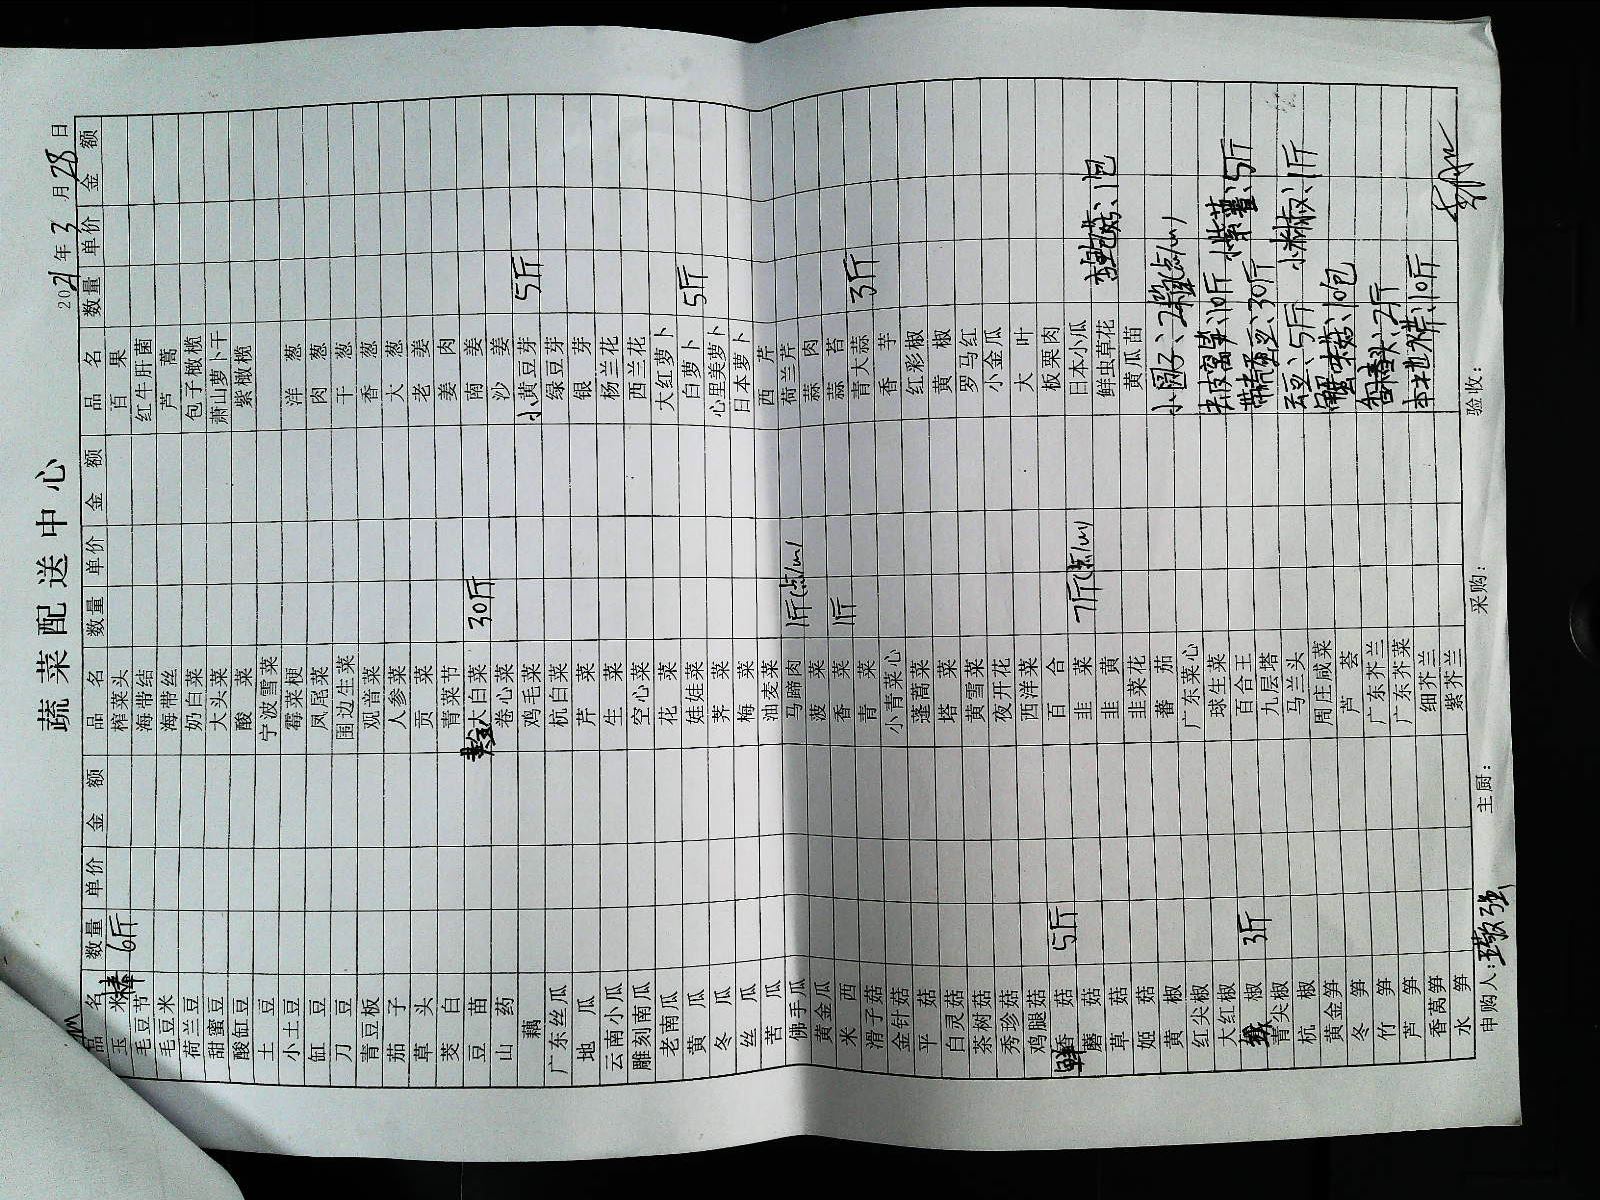 蔬菜配送中心
2021年3月28日
品名 数量 单价 金额 品名 数量 单价 金额 品名 数量 单价 金额
玉米棒 6斤 榨菜头 百果
毛豆节 海带结 红牛肝菌
毛豆米 海带丝 芦蒿
荷兰豆 奶白菜 包子橄榄
甜蜜豆 大头菜 萧山萝卜干
酸缸豆 酸菜 紫橄榄
土豆 宁波雪菜
小土豆 霉菜梗 洋葱
缸豆 凤尾菜 肉葱
刀豆 围边生菜 干葱
青豆板 观音菜 香葱
茄子 人参菜 大葱
草头 贡菜 老姜
茭白 青菜节 姜肉
豆苗 黄金大白菜 30斤 南姜
山药 卷心菜 沙姜
藕 鸡毛菜 小黄豆芽 5斤
广东丝瓜 杭白菜 绿豆芽
地瓜 芹菜 银芽
云南小瓜 生菜 杨兰花
雕刻南瓜 空心菜 西兰花
老南瓜 花菜 大红萝卜
黄瓜 娃娃菜 白萝卜 5斤
冬瓜 荠菜 心里美萝卜
丝瓜 梅菜 日本萝卜
苦瓜 油麦菜 西芹
佛手瓜 马蹄肉 1斤 荷兰芹
黄金瓜 菠菜 蒜肉
米西 香菜 1斤 蒜苔
滑子菇 青菜 青大蒜 3斤
金针菇 小青菜心 香芋
平菇 蓬蒿菜 红彩椒
白灵菇 塔菜 黄椒
茶树菇 黄雪菜 罗马红
秀珍菇 夜开花 小金瓜
鸡腿菇 西洋菜 大叶
鲜香菇 5斤 百合 板栗肉
磨菇 韭菜 7斤 日本小瓜
草菇 韭黄 鲜虫草花 杏鲍菇、1包
姬菇 韭菜花 黄瓜苗
黄椒 蕃茄 小圆子、2
红尖椒 广东菜心
大红椒 球生菜 去皮莴笋、10斤 小紫薯、5斤
椒 3斤 百合王 30斤
青尖椒 九层塔
杭椒 马兰头 云豆、5斤 小米椒、1斤
黄金笋 周庄咸菜 10包
冬笋 芦荟
竹笋 广东芥兰 2斤
芦笋 广东芥菜
香莴笋 细芥兰 本地水芹、10斤
水笋 紫芥兰
申购人： 主厨： 采购： 验收：